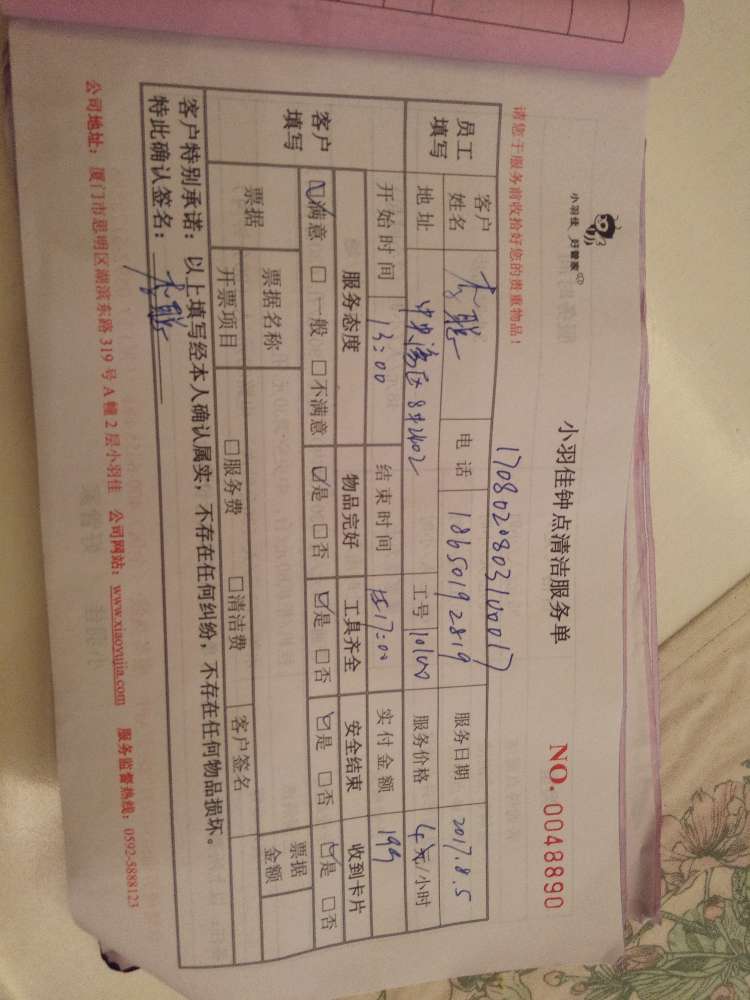 小羽佳 好管家
小羽佳钟点清洁服务单
NO. 0048890
请您于服务前收拾好您的贵重物品！
1708020803100017
员工填写 客户姓名 李聪 电话 18650192819 服务日期 2017.8.5
地址 中央湾区 8#2402 工号 10100 服务价格 4元/小时
开始时间 13:00 结束时间 17:00 实付金额 199
客户填写 服务态度 物品完好 工具齐全 安全结束 收到卡片
☑满意 □一般 □不满意 ☑是 □否 ☑是 □否 ☑是 □否 ☑是 □否
票据 票据名称 票据金额
开票项目 □服务费 □清洁费 客户签名
客户特别承诺：以上填写经本人确认属实，不存在任何纠纷，不存在任何物品损坏。
特此确认签名：李聪
公司地址：厦门市思明区湖滨东路 319 号 A 幢 2 层小羽佳 公司网站：www.xiaoyujia.com 服务监督热线：0592-5888123